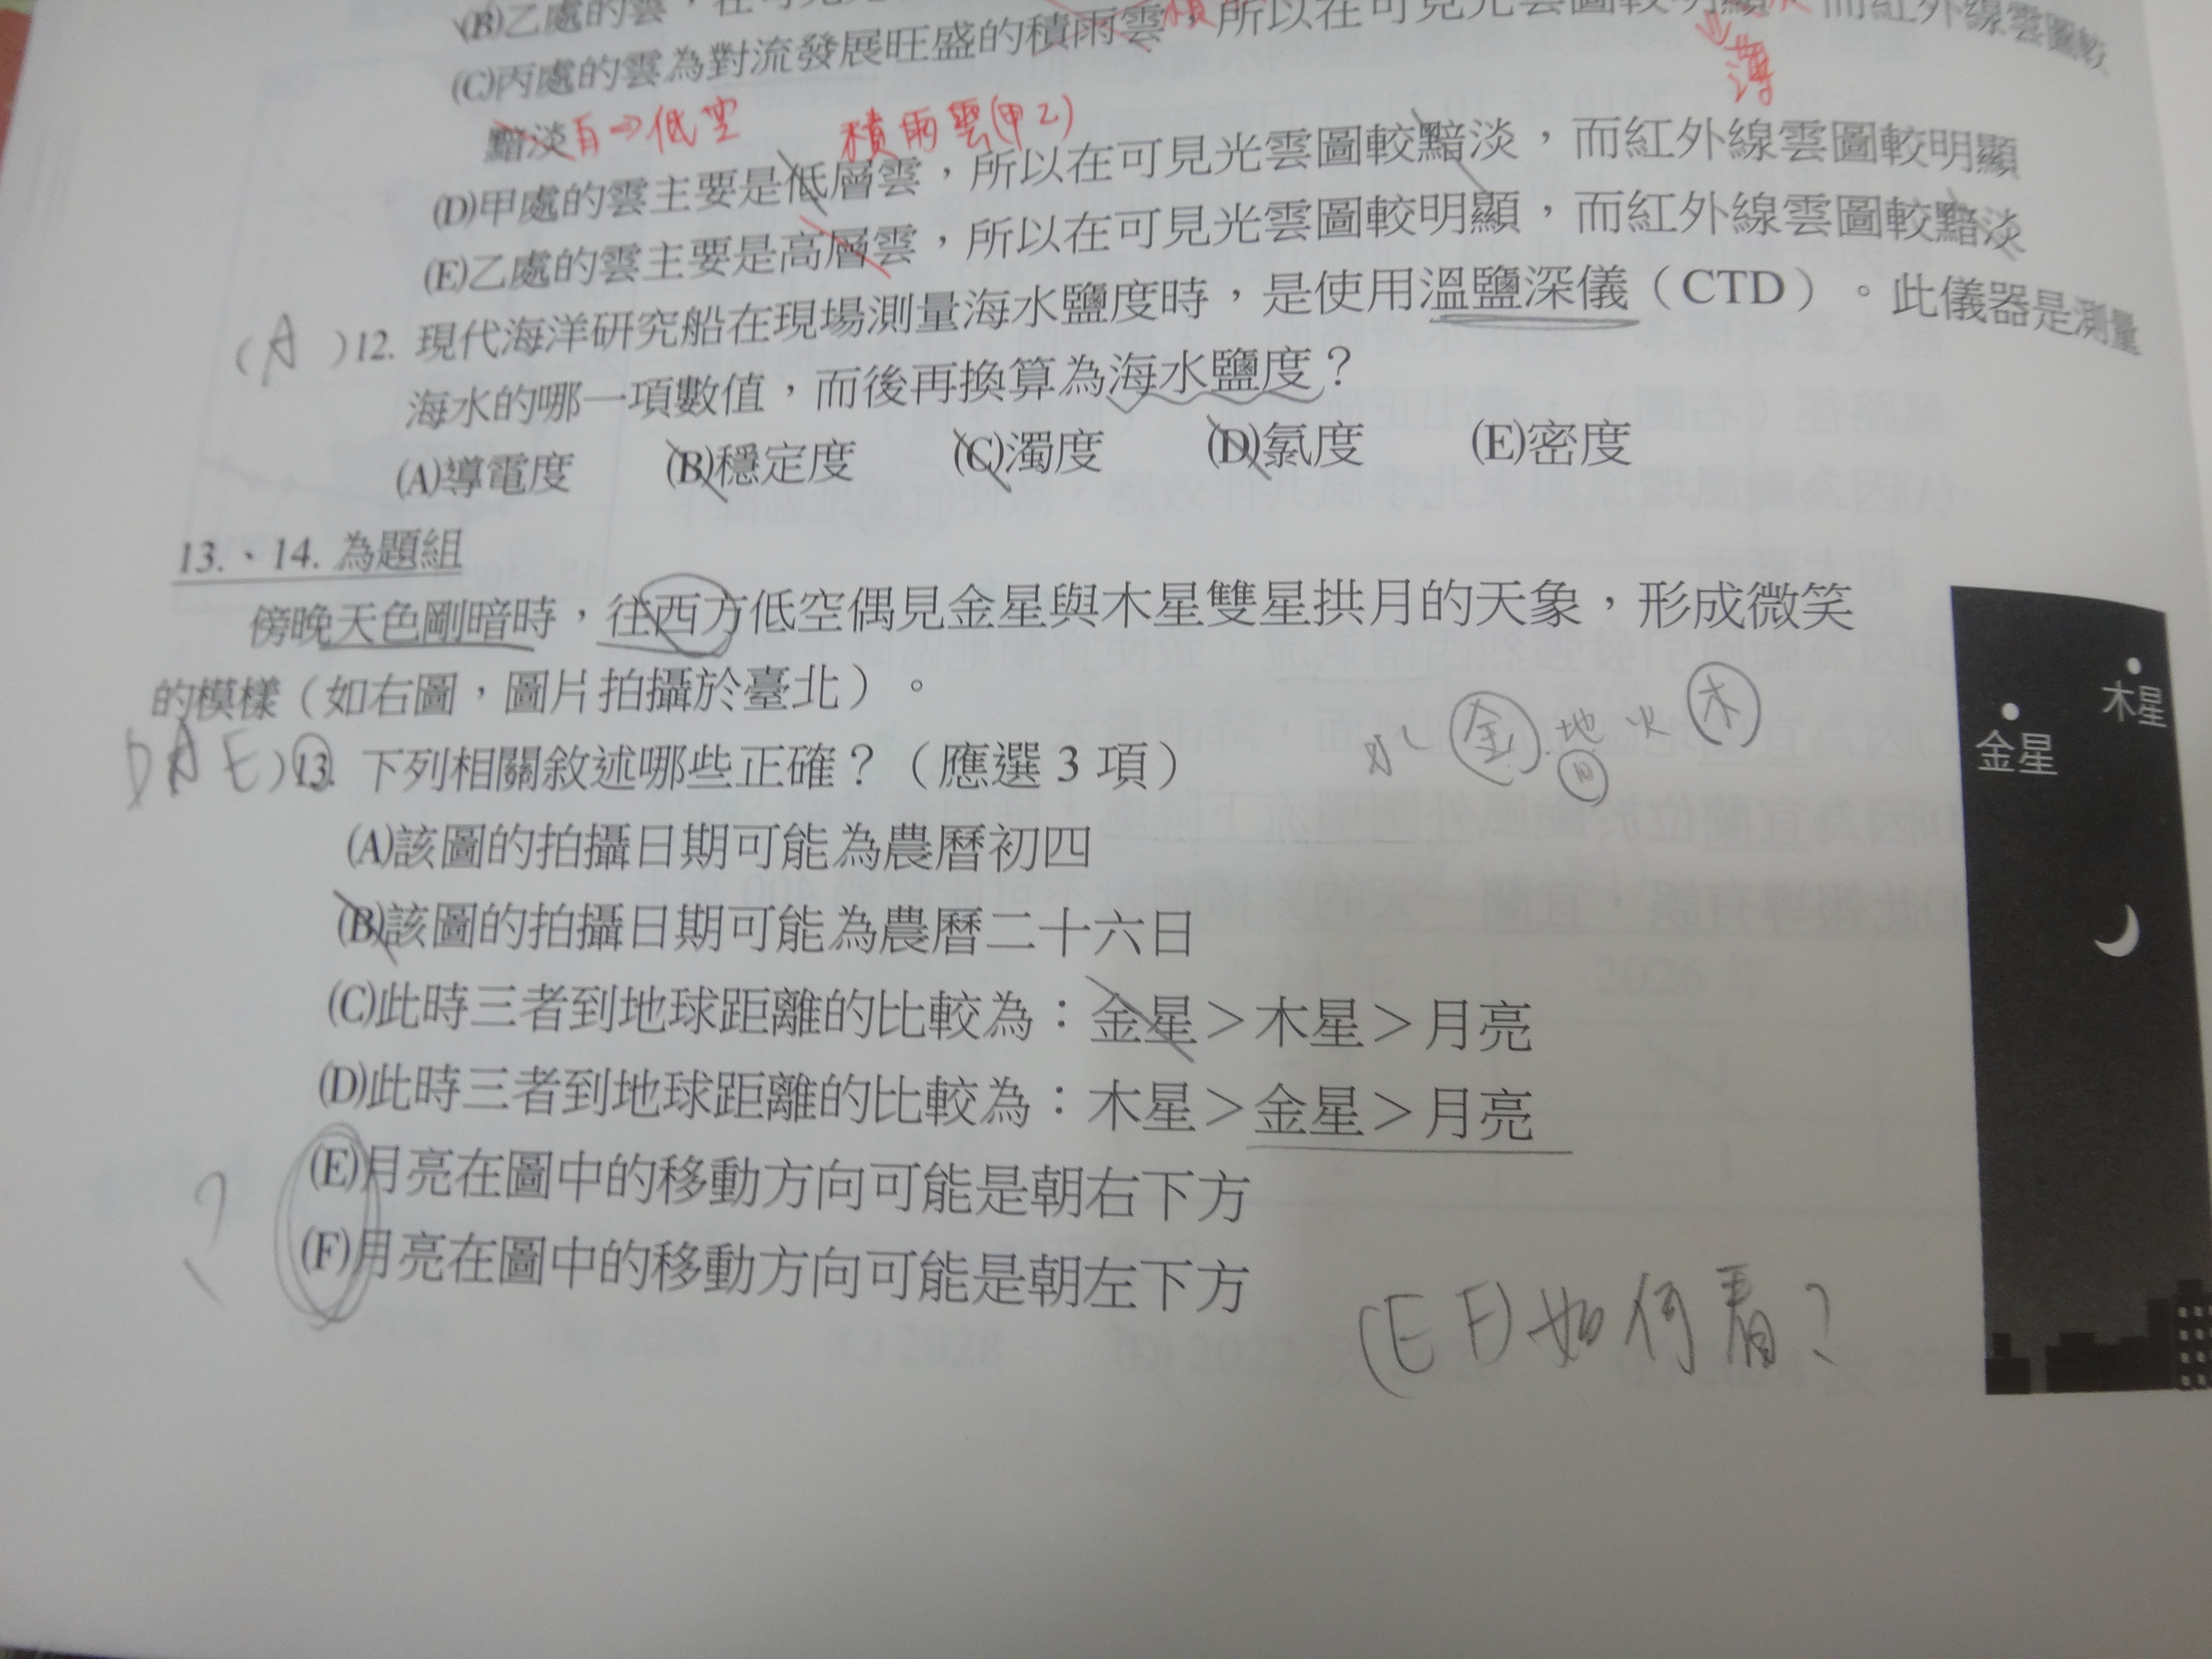 (B)乙處的雲，在可見光
所以在可見光雲圖較明顯，而紅外線雲圖較
(C)丙處的雲為對流發展旺盛的積雨雲，
薄
黯淡
白⇒低空
積雨雲(甲乙)
(D)甲處的雲主要是低層雲，所以在可見光雲圖較黯淡，而紅外線雲圖較明顯
(E)乙處的雲主要是高層雲，所以在可見光雲圖較明顯，而紅外線雲圖較黯淡
(A)12. 現代海洋研究船在現場測量海水鹽度時，是使用溫鹽深儀（CTD）。此儀器是測量
海水的哪一項數值，而後再換算為海水鹽度？
(A)導電度 (B)穩定度 (C)濁度 (D)氯度 (E)密度
13.、14. 為題組
傍晚天色剛暗時，往西方低空偶見金星與木星雙星拱月的天象，形成微笑
的模樣（如右圖，圖片拍攝於臺北）。
水 金 地 火 木
月
DAE)13. 下列相關敘述哪些正確？（應選 3 項）
(A)該圖的拍攝日期可能為農曆初四
(B)該圖的拍攝日期可能為農曆二十六日
(C)此時三者到地球距離的比較為：金星＞木星＞月亮
(D)此時三者到地球距離的比較為：木星＞金星＞月亮
(E)月亮在圖中的移動方向可能是朝右下方
(F)月亮在圖中的移動方向可能是朝左下方
?
(EF)如何看?
木星
金星